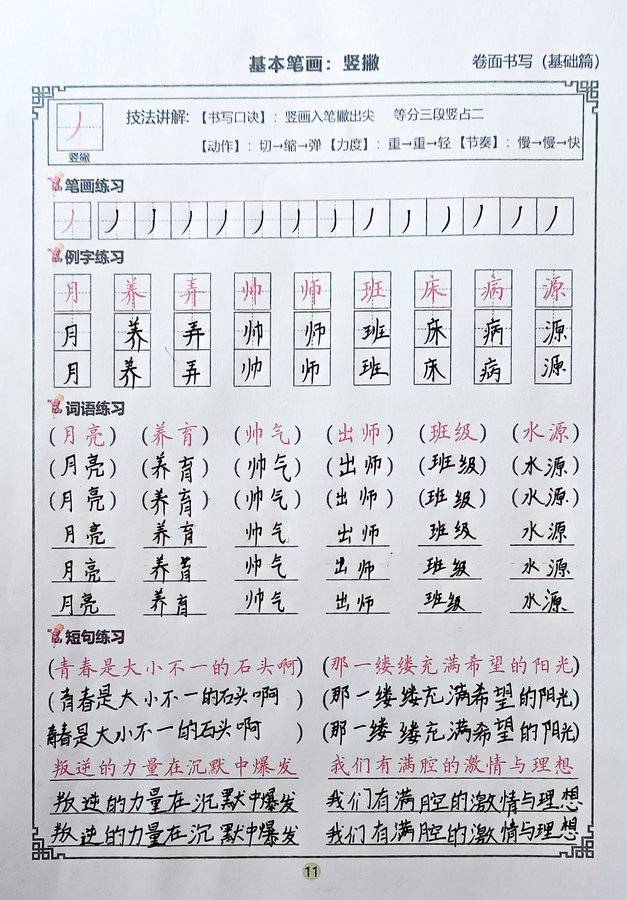 基本笔画：竖撇
卷面书写（基础篇）
技法讲解：【书写口诀】：竖画入笔撇出尖 等分三段竖占二
【动作】：切→缩→弹【力度】：重→重→轻【节奏】：慢→慢→快
竖撇
笔画练习
丿丿丿丿丿丿丿丿丿丿丿丿丿丿
例字练习
月 养 弄 帅 师 班 床 病 源
月 养 弄 帅 师 班 床 病 源
月 养 弄 帅 师 班 床 病 源
词语练习
（月亮）（养育）（帅气）（出师）（班级）（水源）
（月亮）（养育）（帅气）（出师）（班级）（水源）
（月亮）（养育）（帅气）（出师）（班级）（水源）
月亮 养育 帅气 出师 班级 水源
月亮 养育 帅气 出师 班级 水源
月亮 养育 帅气 出师 班级 水源
短句练习
（青春是大小不一的石头啊）（那一缕缕充满希望的阳光）
（青春是大小不一的石头啊）（那一缕缕充满希望的阳光）
青春是大小不一的石头啊）（那一缕缕充满希望的阳光）
叛逆的力量在沉默中爆发 我们有满腔的激情与理想
叛逆的力量在沉默中爆发 我们有满腔的激情与理想
叛逆的力量在沉默中爆发 我们有满腔的激情与理想
11